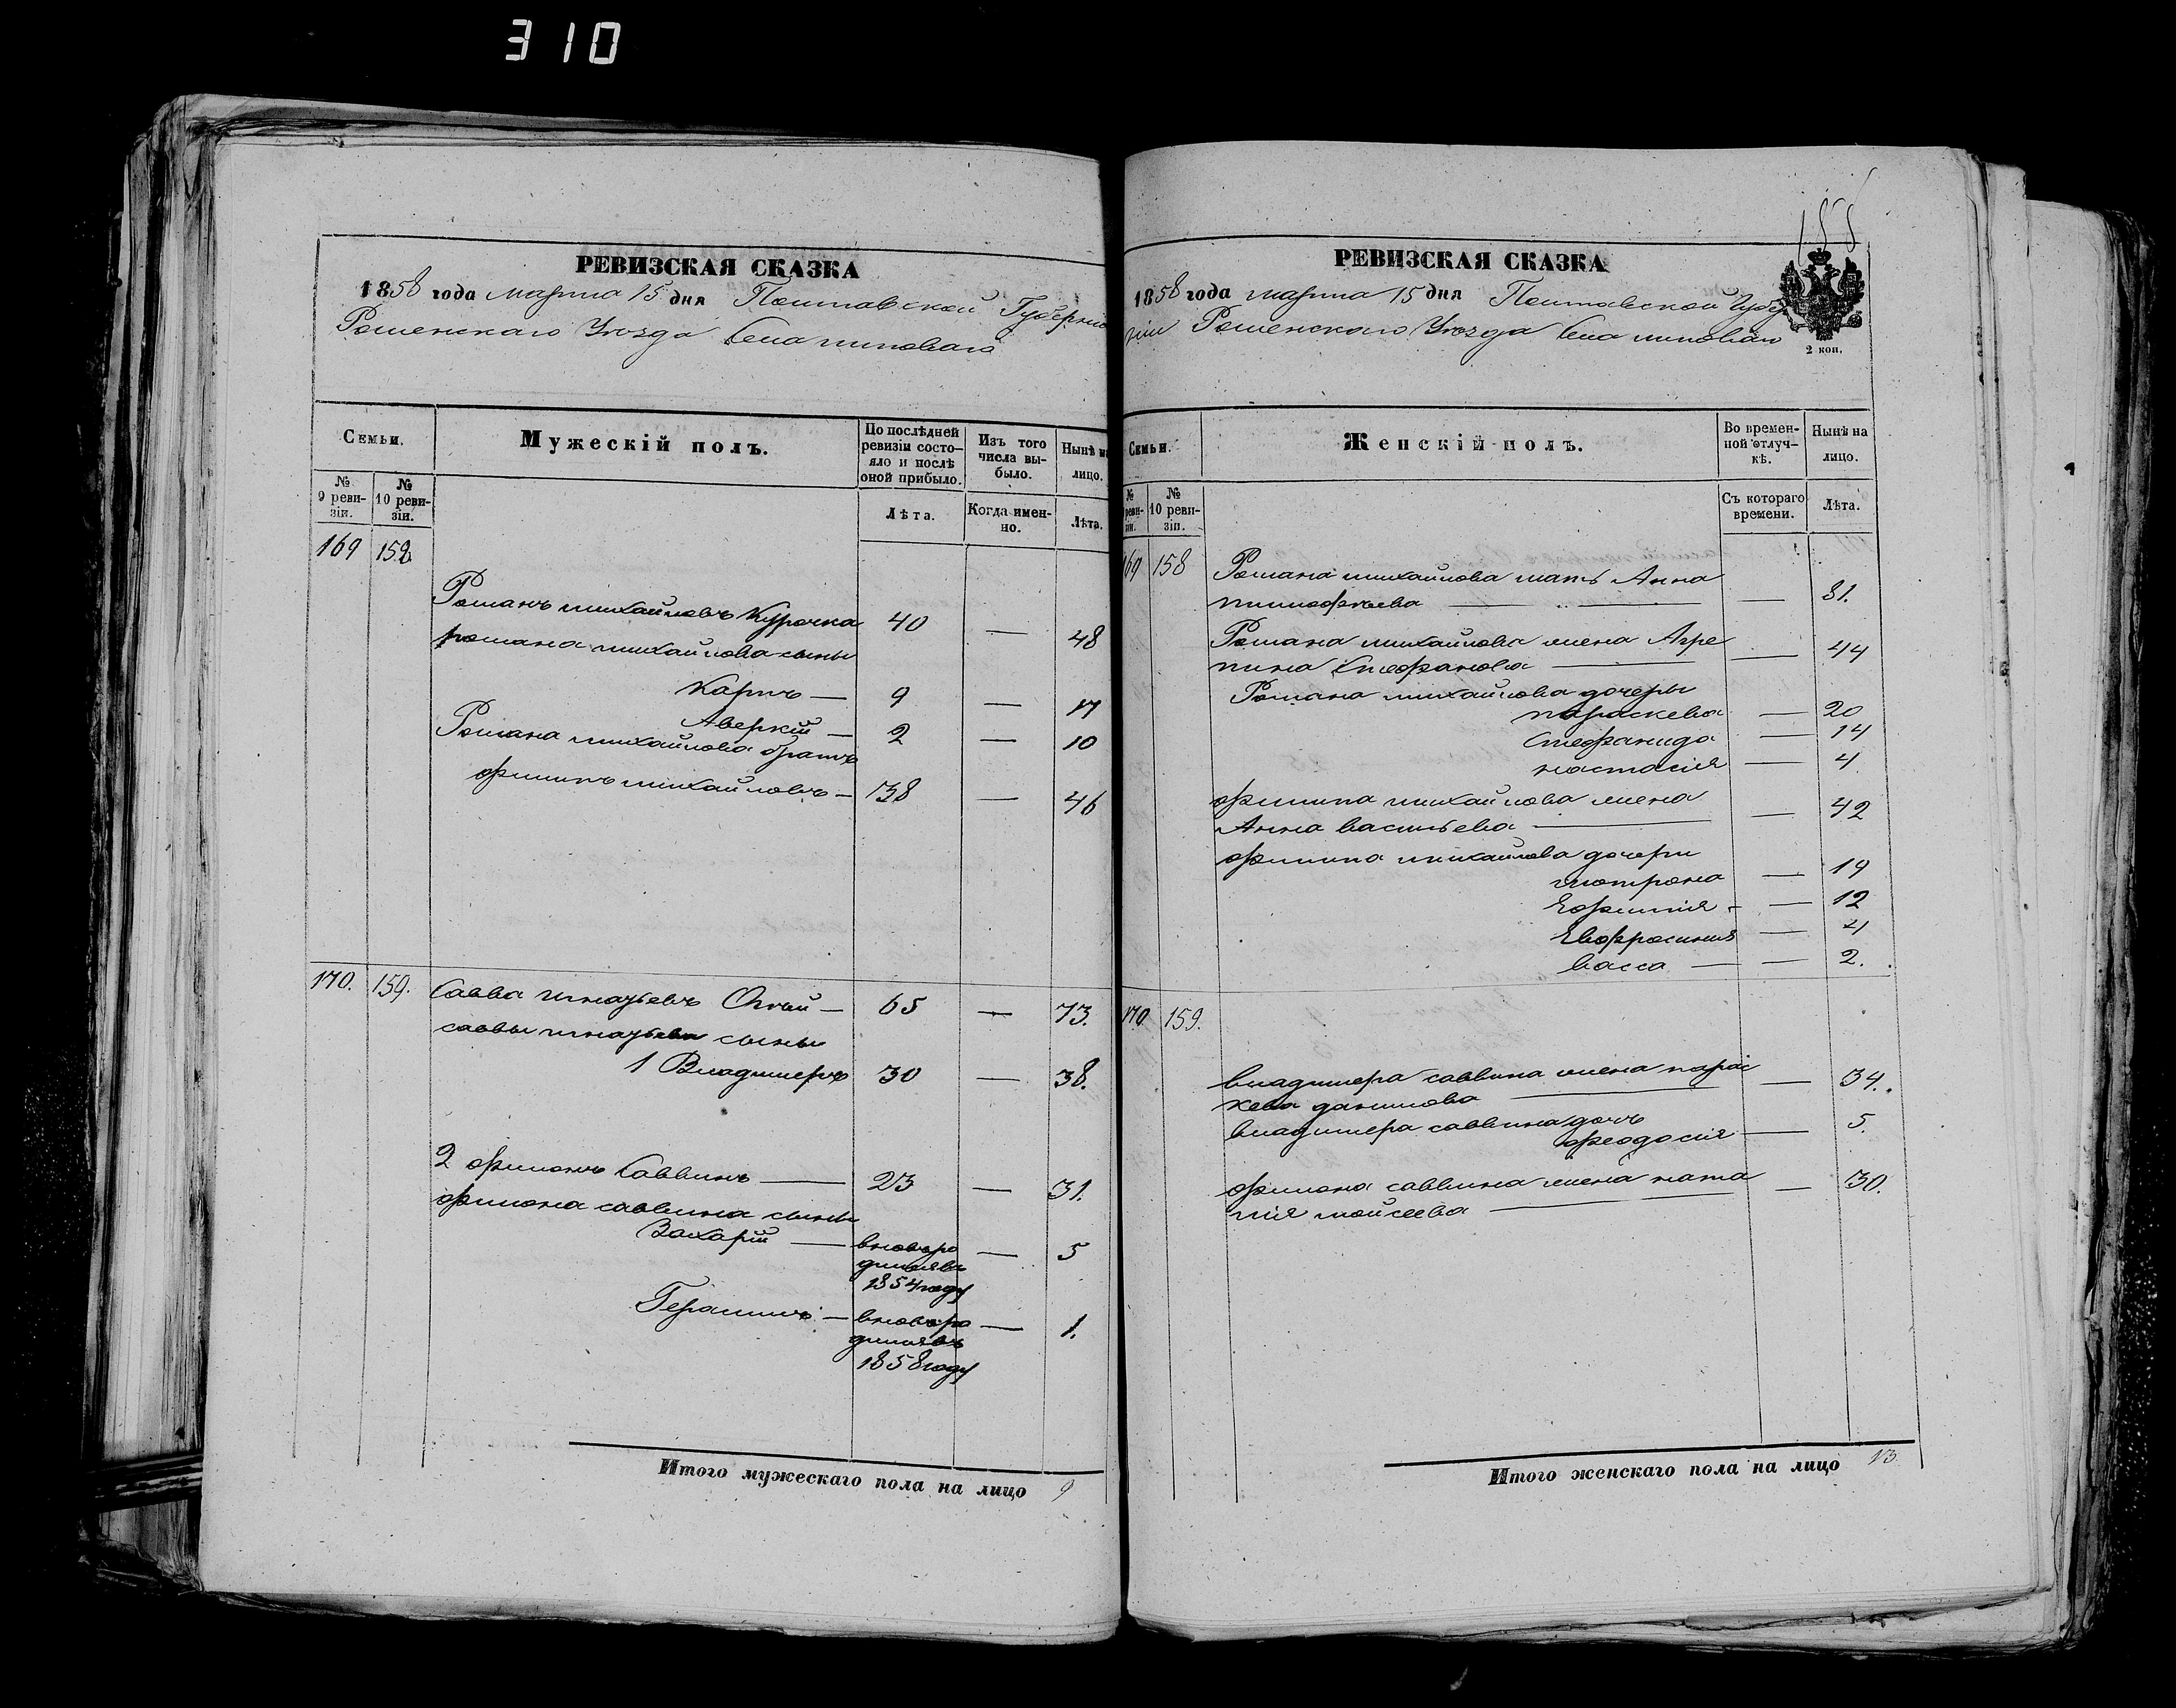 310
РЕВИЗСКАЯ СКАЗКА
1858 года марта 15 дня Полтавской Губернии
Роменскаго Уезда Села липоваго
Семьи.
Мужескій полъ.
По послѣдней ревизіи состояло и послѣ оной прибыло.
Изъ того числа выбыло.
Нынѣ на лицо.
№ 9 ревизіи.
№ 10 ревизіи.
Лѣта.
Когда именно.
Лѣта.
169 158
Романъ михайловъ Курочка 40 — 48
романа михайлова сыны
Карпъ — 9 — 17
Аверкій — 2 — 10
Романа михайлова братъ
филипъ михайловъ — 38 — 46
170. 159. Савва игнатьевъ — 65 — 73.
саввы игнатьева сыны
1 Владимеръ 30 — 38.
2 филонъ Саввинъ — 23 — 31.
филона саввина сыны
Захарій — вновьро — 5
дился въ
1854 году
Герасимъ — вновьро — 1.
дился въ
1858 году
Итого мужескаго пола на лицо 9
155
РЕВИЗСКАЯ СКАЗКА
1858 года марта 15 дня Полтавской Губер
ніи Роменского Уезда Села липоваго
2 коп.
Семьи.
Женскій полъ.
Во временной отлучкѣ.
Нынѣ на лицо.
№ 9 ревизіи.
№ 10 ревизіи.
Съ котораго времени.
Лѣта.
169 158 Романа михайлова мать Анна
тимофѣева — — 81.
Романа михайлова жена Агре
пина Стефанова — — 44
Романа михайлова дочеры
параскева — 20
Стефанида — 14
настасія — 4
филипа михайлова жена
Анна васильева — — 42
филипа михайлова дочери
мотрона — 19
Ефимія — — 12
Евфросинія — 4
васса — — 2.
170 159.
владимера саввина жена парас
кева данилова — — 34.
владимера саввина дочь
феодосія — 5.
филона саввина жена ната
лія мойсеева — — 30.
Итого женскаго пола на лицо 13